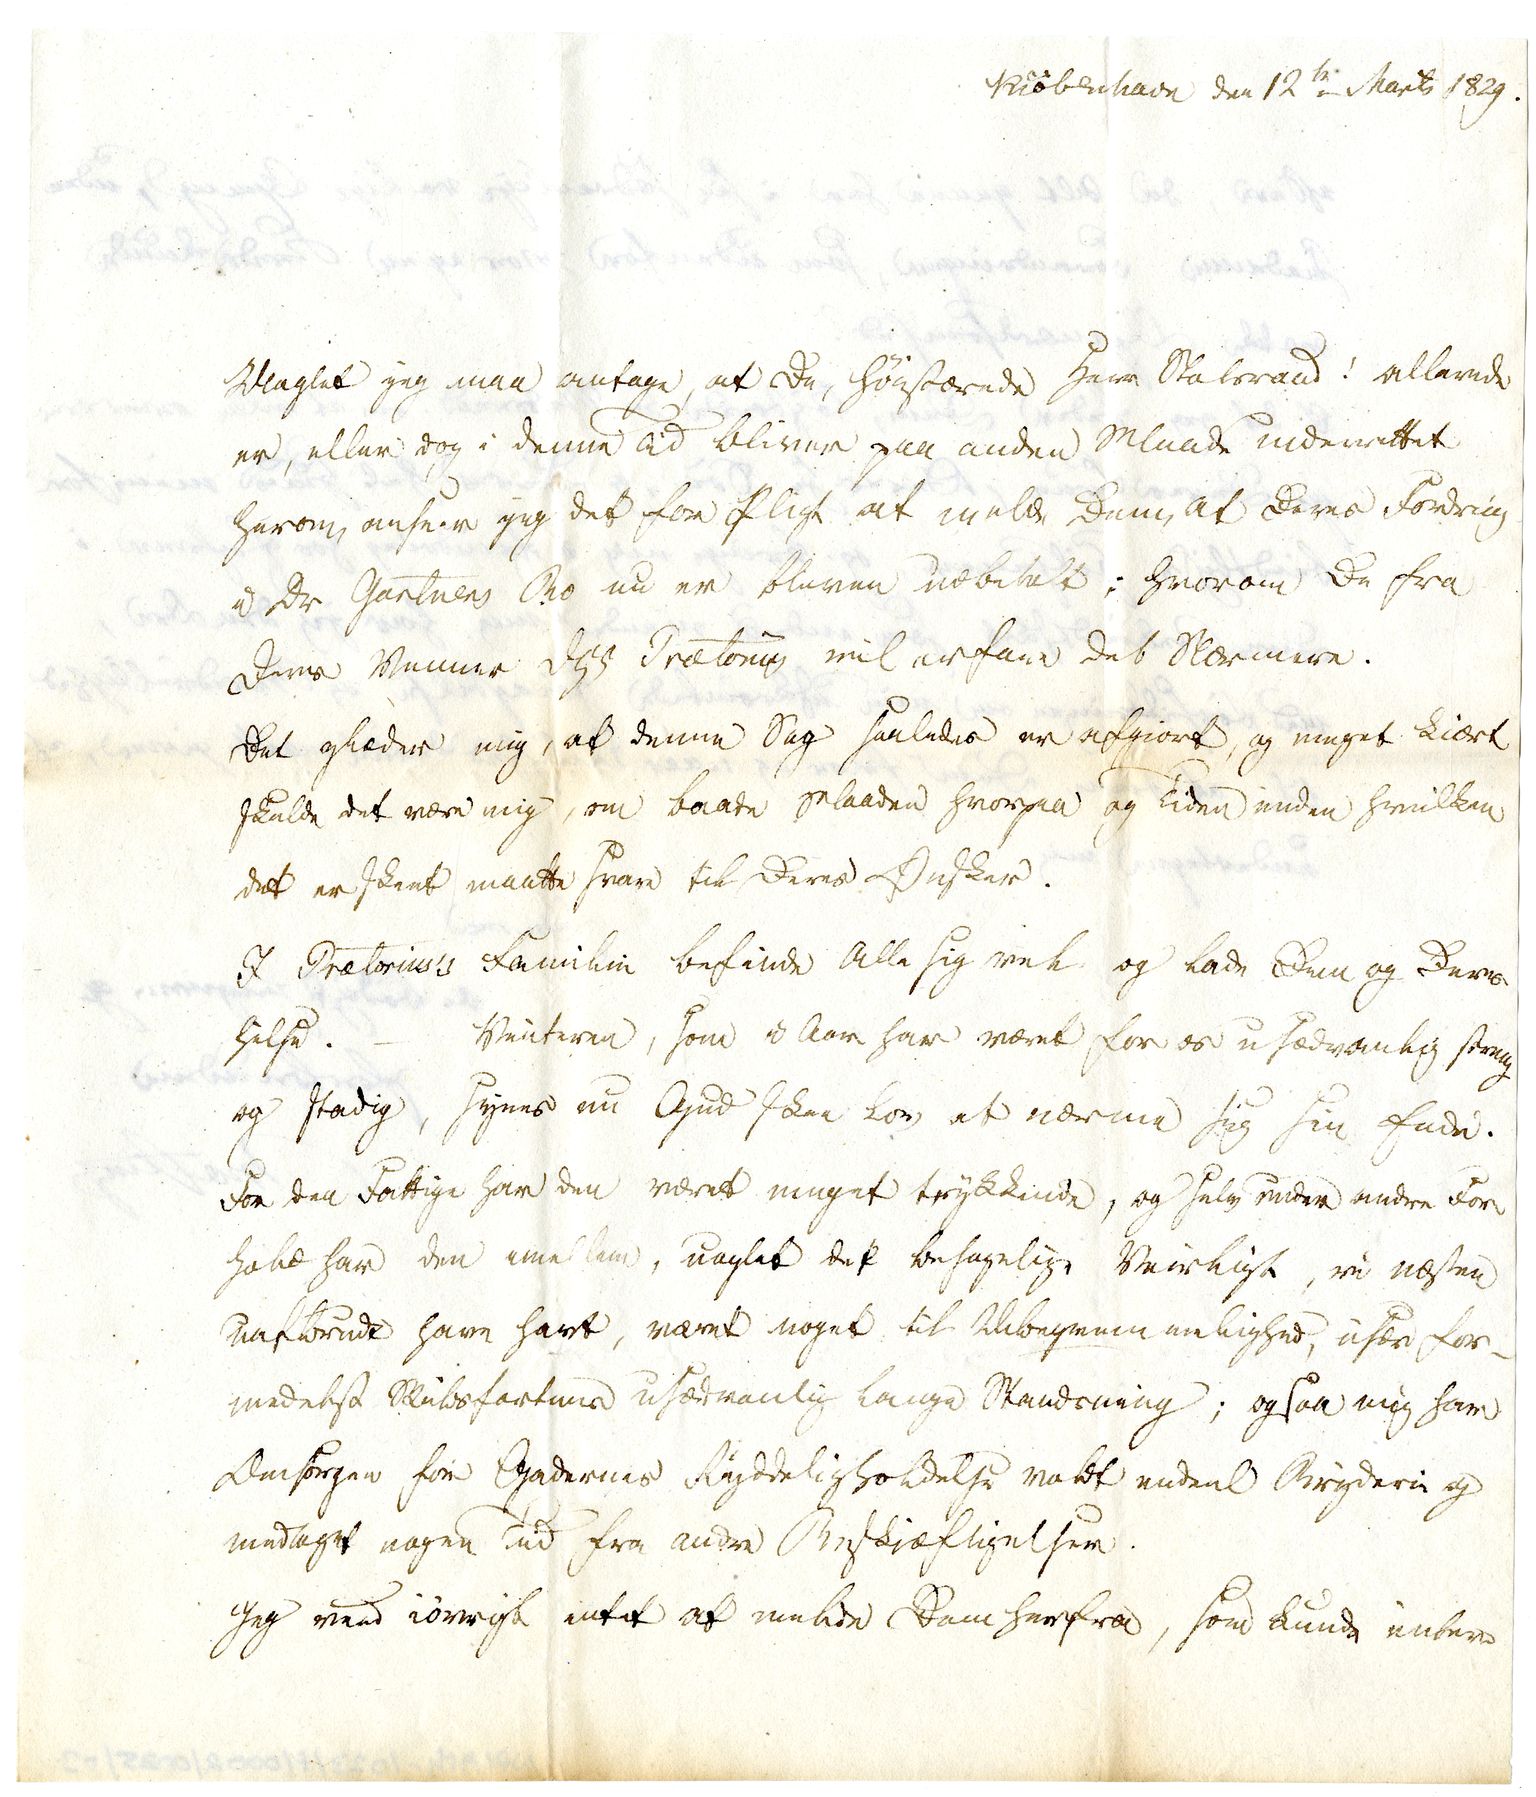 Kiöbenhavn den 12te Marts 1829.
Uagtet jeg maa antage, at De, høistærede Herr Statsraad! allerede
er, eller dog i denne Tid bliver paa anden Maade underrettet
herom, anseer jeg det for Pligt at melde Dem, at Deres Fordring
i Dr Gartners Bo nu er bleven udbetalt; hvorom De fra
Deres Venner DHr Prætorius vil erfare det Nærmere.
Det glæder mig, at denne Sag saaledes er afgiort, og meget kiært
skulde det være mig, om baade Maaden hvorpaa og Tiden inden hvilken
det er skeet maatte svare til Deres Ønsker.
I Prætorius's Familie befinde Alle sig vel og lade Dem og Deres
hilse. – Vinteren, som i Aar har været for os usædvanlig streng
og stadig, synes nu Gud skee Lov at nærme sig sin Ende.
For den Fattige har den været meget trykkende, og selv under andre For
hold har den imellem, uagtet det behagelige Veirligt, vi næsten
uafbrudt have havt, været noget til Ubeqvemmelighed, især for-
medelst Skibsfartens usædvanlig lange Standsning; ogsaa mig har
Omsorgen for Gadernes Ryddeligholdelse voldt endeel Bryderie og
medtaget nogen Tid fra andre Beskjæftigelser.
Jeg veed iøvrigt intet at melde Dem herfra, som kunde intere